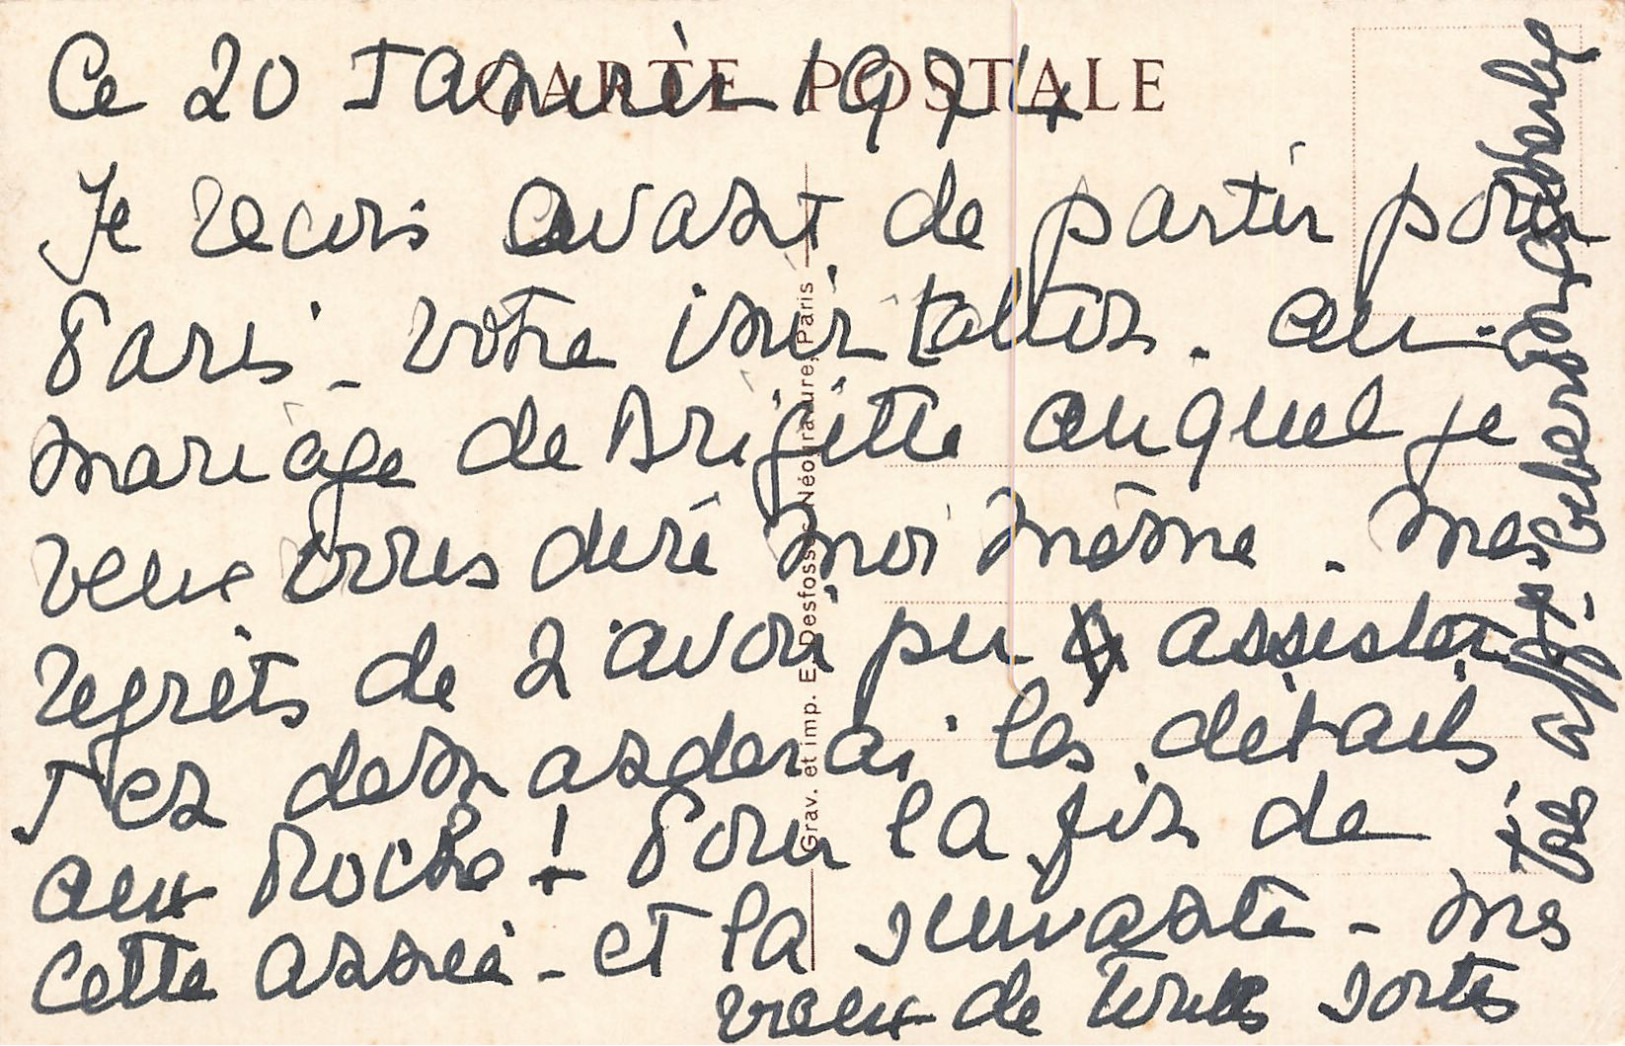 CARTE POSTALE
Ce 20 Janvier 1974
Je reçois avant de partir pour
Paris - votre invitation. au
mariage de Brigitte auquel je
veux vous dire moi même. mes
regrets de n'avoir pu assister.
J'en demanderai les détails
aux Roche! Pour la fin de
cette année - et la suivante - mes
vœux de toutes sortes
très aff
Grav. et imp. E. Desfossés-Néogravure, Paris